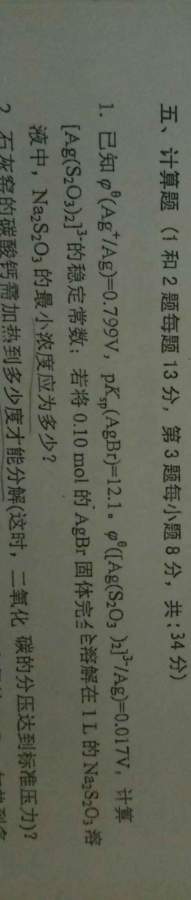 五、计算题（1 和 2 题每题 13 分，第 3 题每小题 8 分，共：34 分）
1. 已知 φ^θ(Ag⁺/Ag)=0.799V，pK_sp(AgBr)=12.1。φ^θ([Ag(S₂O₃)₂]³⁻/Ag)=0.017V，计算
[Ag(S₂O₃)₂]³⁻的稳定常数；若将 0.10 mol 的 AgBr 固体完全溶解在 1 L 的 Na₂S₂O₃ 溶
液中，Na₂S₂O₃ 的最小浓度应为多少？
2. 石灰窑的碳酸钙需加热到多少度才能分解(这时，二氧化 碳的分压达到标准压力)？